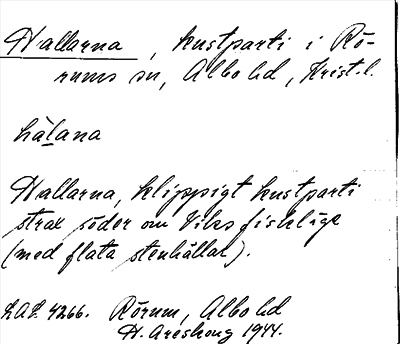 Hallarna, kustparti i Rö-
rums sn, Albo hd, Krist. l.
hàḷana
Hallarna, klippigt kustparti
strax söder om Viks fiskläge
(med flata stenhällar).
LAL 4266. Rörum, Albo hd
H. Areskoug 1944.